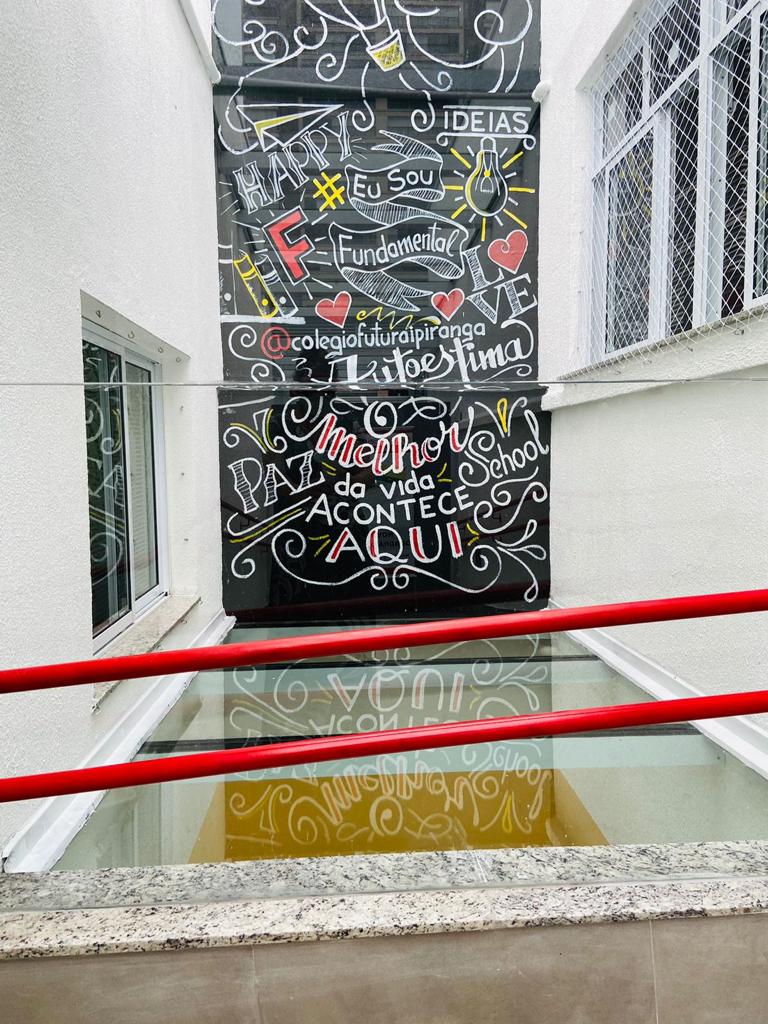 IDEIAS
HAPPY
# Eu Sou
F
Fundamental
LOVE
@colegiofuturaipiranga
Autoestima
O
melhor
PAZ
School
da vida
ACONTECE
AQUI